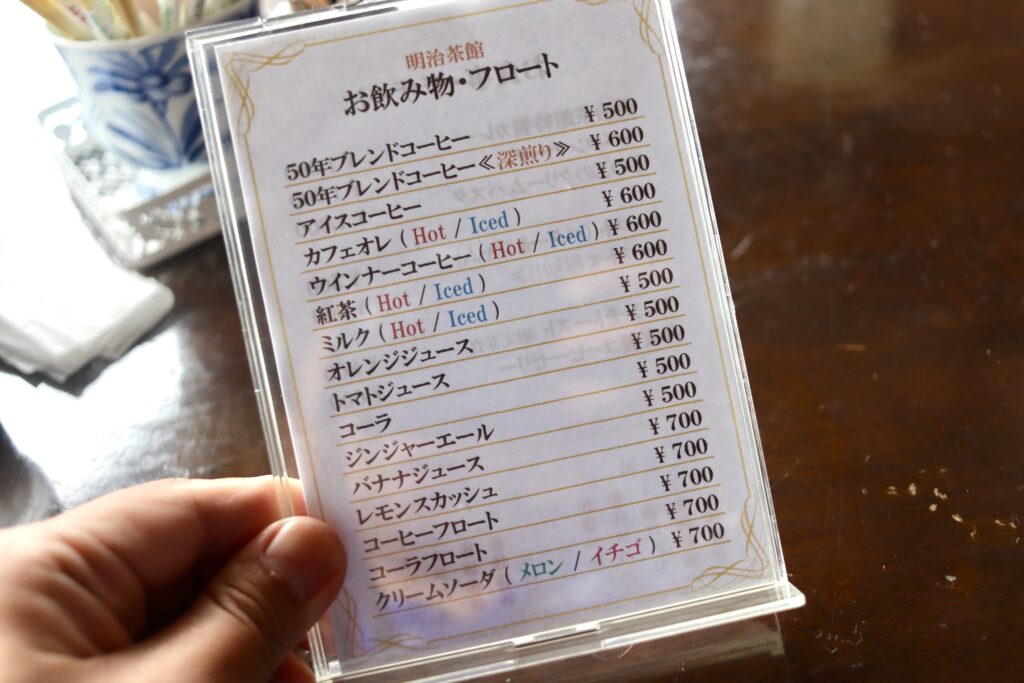 明治茶館
お飲み物・フロート
50年ブレンドコーヒー ¥ 500
50年ブレンドコーヒー≪深煎り≫ ¥ 600
アイスコーヒー ¥ 500
カフェオレ ( Hot / Iced ) ¥ 600
ウインナーコーヒー ( Hot / Iced ) ¥ 600
紅茶 ( Hot / Iced ) ¥ 600
ミルク ( Hot / Iced ) ¥ 500
オレンジジュース ¥ 500
トマトジュース ¥ 500
コーラ ¥ 500
ジンジャーエール ¥ 500
バナナジュース ¥ 700
レモンスカッシュ ¥ 700
コーヒーフロート ¥ 700
コーラフロート ¥ 700
クリームソーダ ( メロン / イチゴ ) ¥ 700